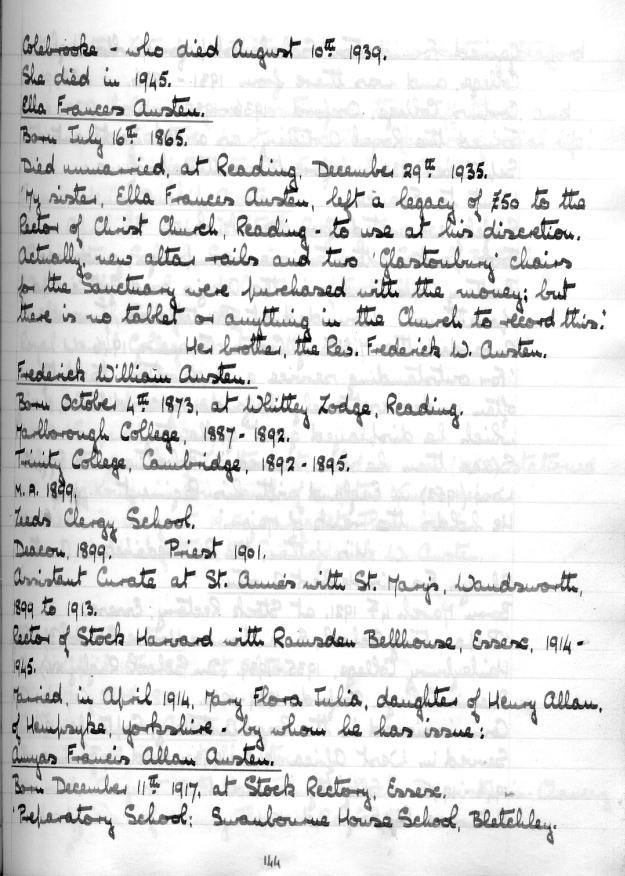 Colebrooke - who died August 10th 1939.
She died in 1945.
Ella Frances Austen.
Born July 16th 1865.
Died unmarried, at Reading, December 29th 1935.
'My sister, Ella Frances Austen, left a legacy of £50 to the
Rector of Christ Church, Reading - to use at his discretion.
Actually, new altar rails and two 'Glastonbury' chairs
for the Sanctuary were purchased with the money; but
there is no tablet or anything in the Church to record this.'
Her brother, the Rev. Frederick W. Austen.
Frederick William Austen.
Born October 4th 1873, at Whitley Lodge, Reading.
Marlborough College, 1887 - 1892.
Trinity College, Cambridge, 1892 - 1895.
M.A. 1899.
Leeds Clergy School.
Deacon, 1899. Priest 1901.
Assistant Curate at St. Anne's with St. Mary's, Wandsworth,
1899 to 1913.
Rector of Stock Harvard with Ramsden Bellhouse, Essex, 1914 -
1945.
Married, in April 1914, Mary Flora Julia, daughter of Henry Allan,
of Hempsyke, Yorkshire - by whom he has issue:
Amyas Francis Allan Austen.
Born December 11th 1917, at Stock Rectory, Essex.
Preparatory School: Swanbourne House School, Bletchley.
144